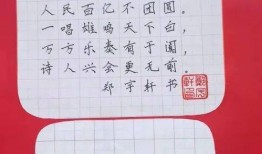 人民五亿不团圆。
一唱雄鸡天下白，
万方乐奏有于阗，
诗人兴会更无前。
郑宇轩书